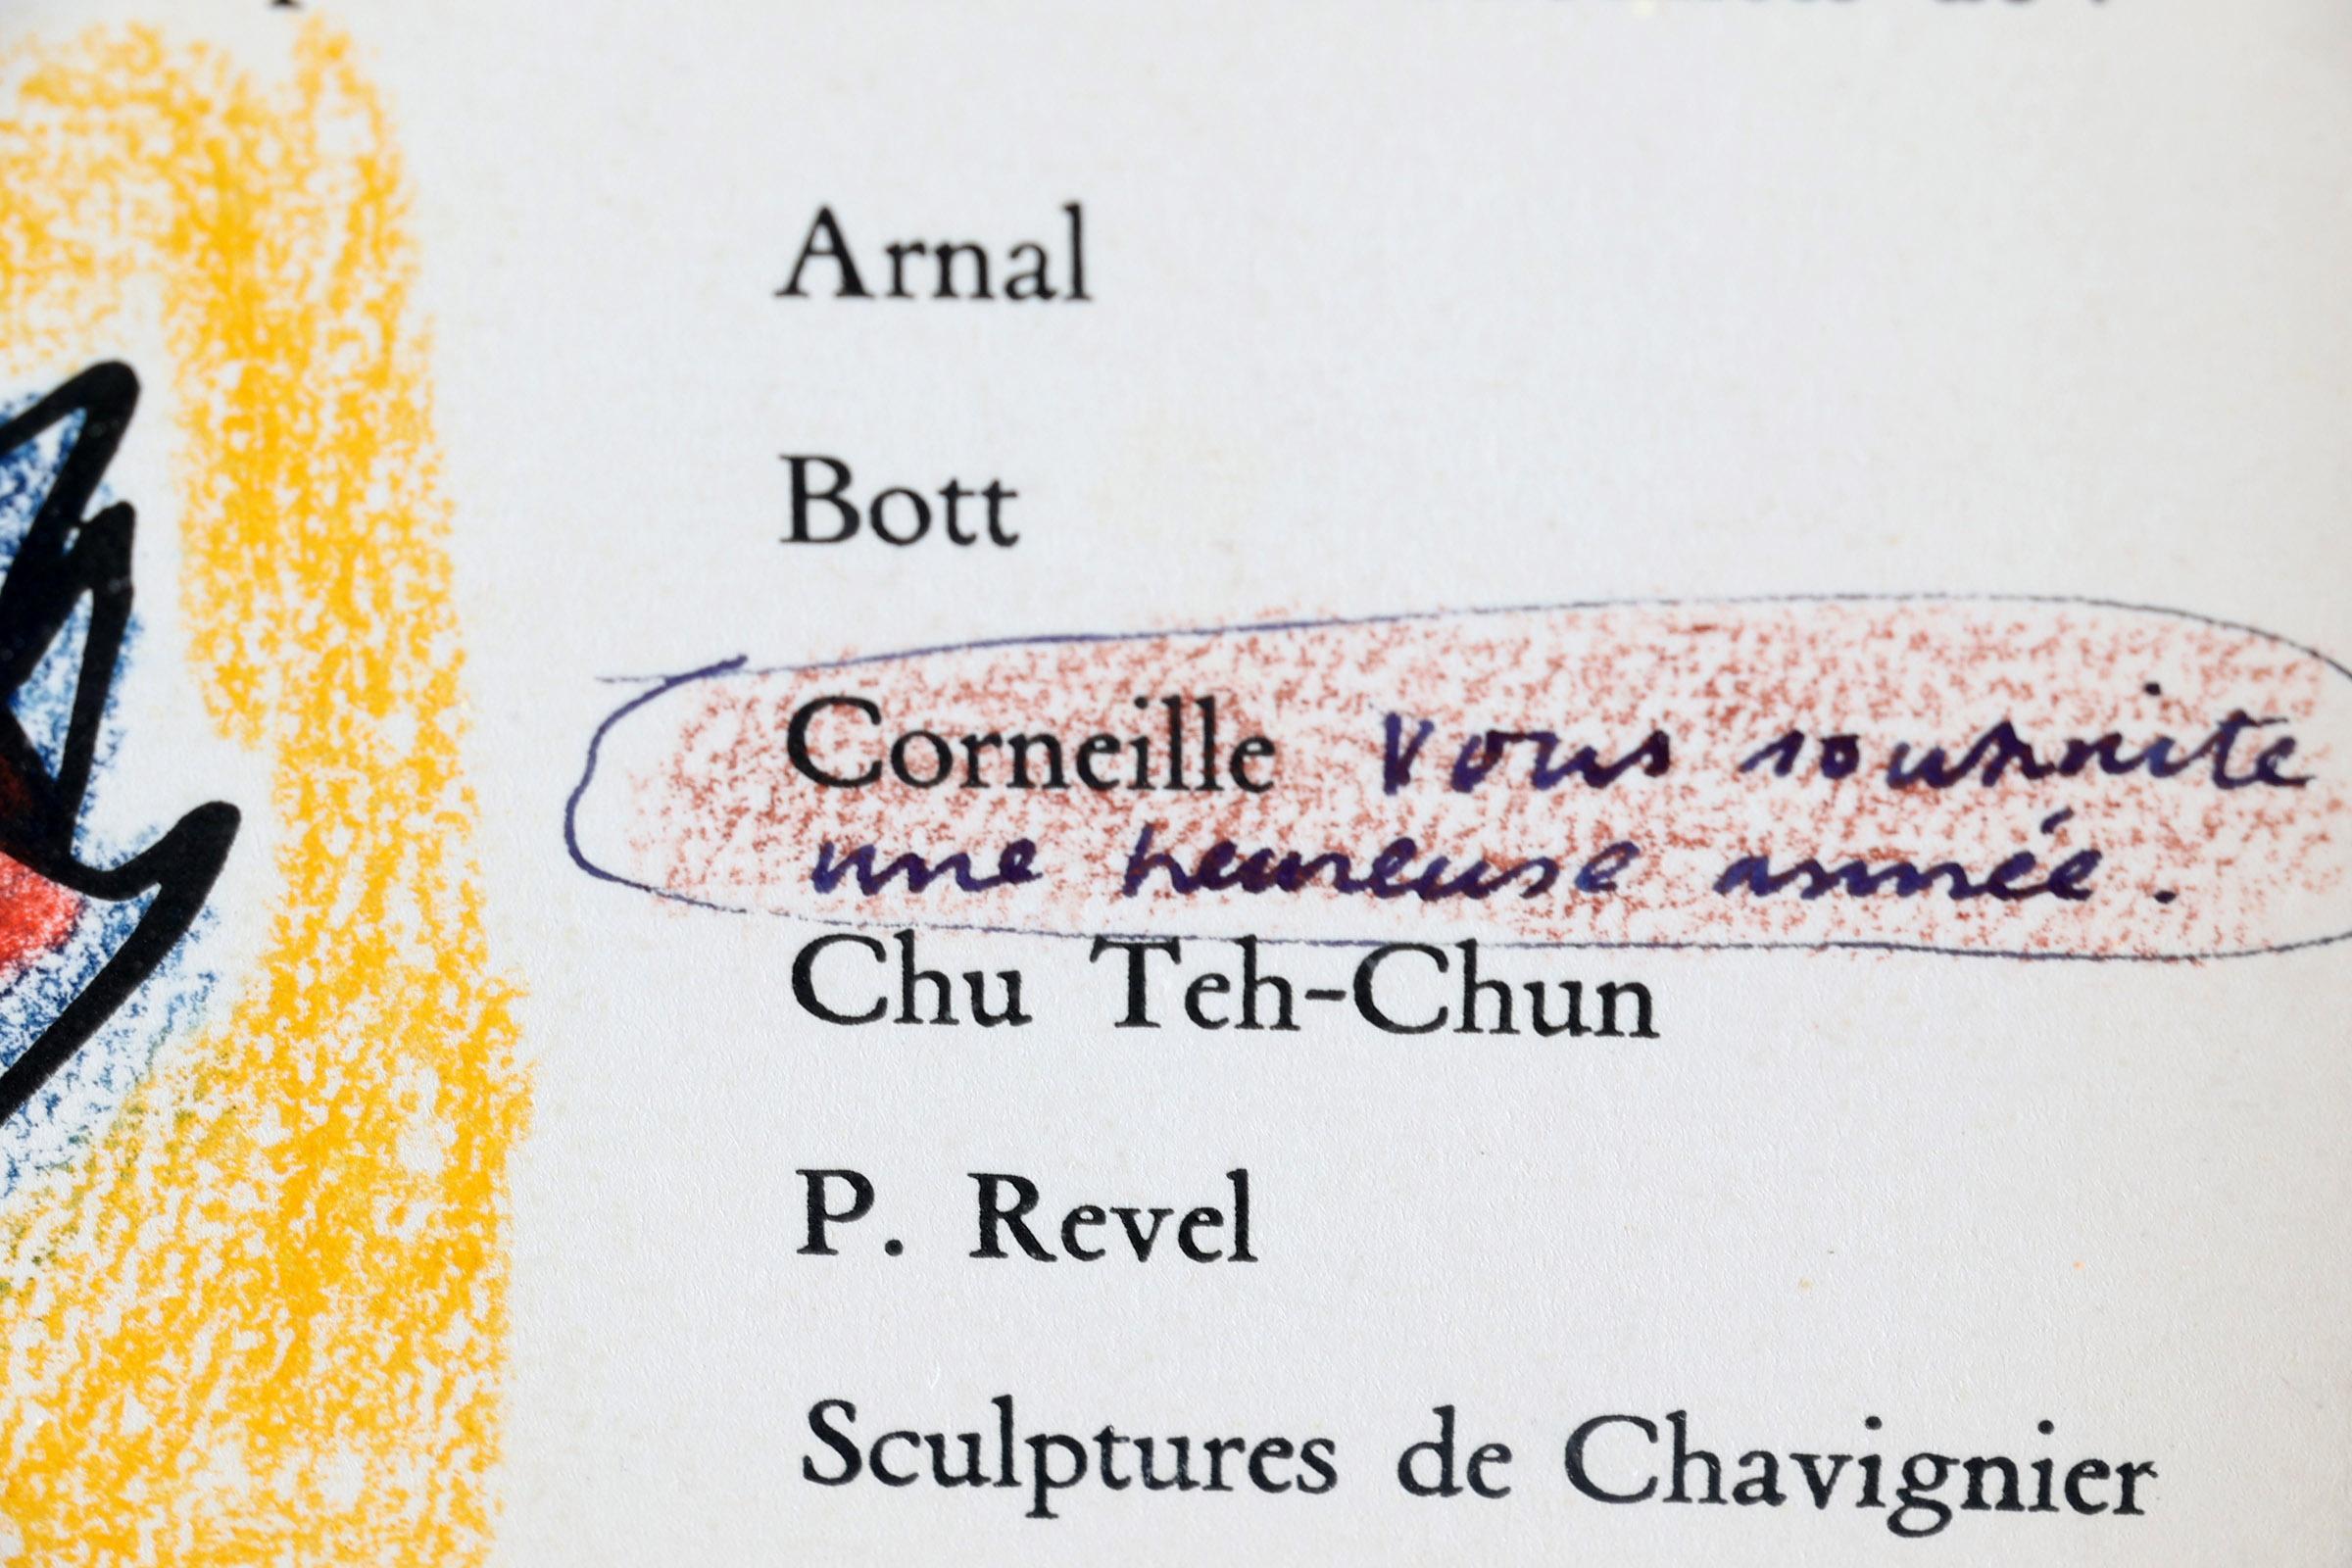 Arnal
Bott
Corneille vous souhaite
une heureuse année.
Chu Teh-Chun
P. Revel
Sculptures de Chavignier